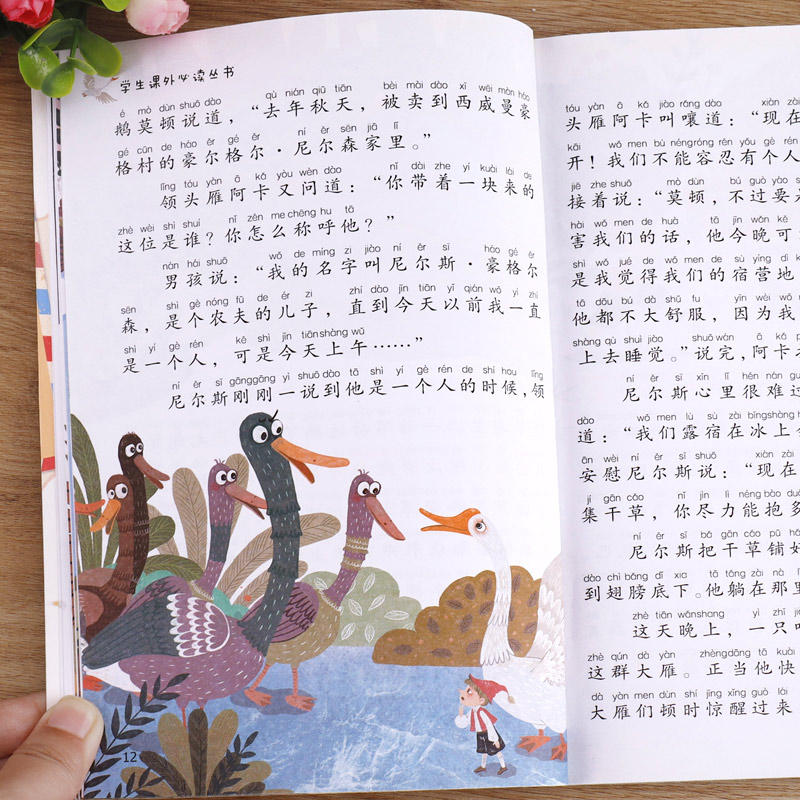 学生课外必读丛书
é mò dùn shuō dào qù nián qiū tiān bèi mài dào xī wēi màn háo
鹅莫顿说道，“去年秋天，被卖到西威曼豪
gé cūn de háo ěr gé ěr ní ěr sēn jiā lǐ
格村的豪尔格尔·尼尔森家里。”
lǐng tóu yàn ā kǎ yòu wèn dào nǐ dài zhe yí kuài lái de
领头雁阿卡又问道：“你带着一块来的
zhè wèi shì shuí nǐ zěn me chēng hu tā
这位是谁？你怎么称呼他？”
nán hái shuō wǒ de míng zi jiào ní ěr sī háo gé ěr
男孩说：“我的名字叫尼尔斯·豪格尔
sēn shì gè nóng fū de ér zi zhí dào jīn tiān yǐ qián wǒ yì zhí
森，是个农夫的儿子，直到今天以前我一直
shì yí gè rén kě shì jīn tiān shàng wǔ
是一个人，可是今天上午……”
ní ěr sī gāng gāng yì shuō dào tā shì yí gè rén de shí hou lǐng
尼尔斯刚刚一说到他是一个人的时候，领
12
tóu yàn ā kǎ jiào rǎng dào xiàn zài
头雁阿卡叫嚷道：“现在
kāi wǒ men bù néng róng rěn yǒu gè rén
开！我们不能容忍有个人
jiē zhe shuō mò dùn bú guò yào
接着说：“莫顿，不过要是
hài wǒ men de huà tā jīn wǎn kě
害我们的话，他今晚可
shì wǒ jué de wǒ men de sù yíng dì
是我觉得我们的宿营地
tā dōu bú dà shū fu yīn wèi wǒ
他都不大舒服，因为我
shàng qù shuì jiào shuō wán ā kǎ
上去睡觉。”说完，阿卡
ní ěr sī xīn lǐ hěn nán guò
尼尔斯心里很难过
dào wǒ men lù sù zài bīng shàng
道：“我们露宿在冰上
ān wèi ní ěr sī shuō xiàn zài
安慰尼尔斯说：“现在
jí gān cǎo nǐ jìn lì néng bào duō
集干草，你尽力能抱多
ní ěr sī bǎ gān cǎo pū hǎo
尼尔斯把干草铺好
dào chì bǎng dǐ xia tā tǎng zài nà lǐ
到翅膀底下。他躺在那里
zhè tiān wǎn shang yì zhī
这天晚上，一只
zhè qún dà yàn zhèng dāng tā kuài
这群大雁。正当他快
dà yàn men dùn shí jīng xǐng guò lái
大雁们顿时惊醒过来